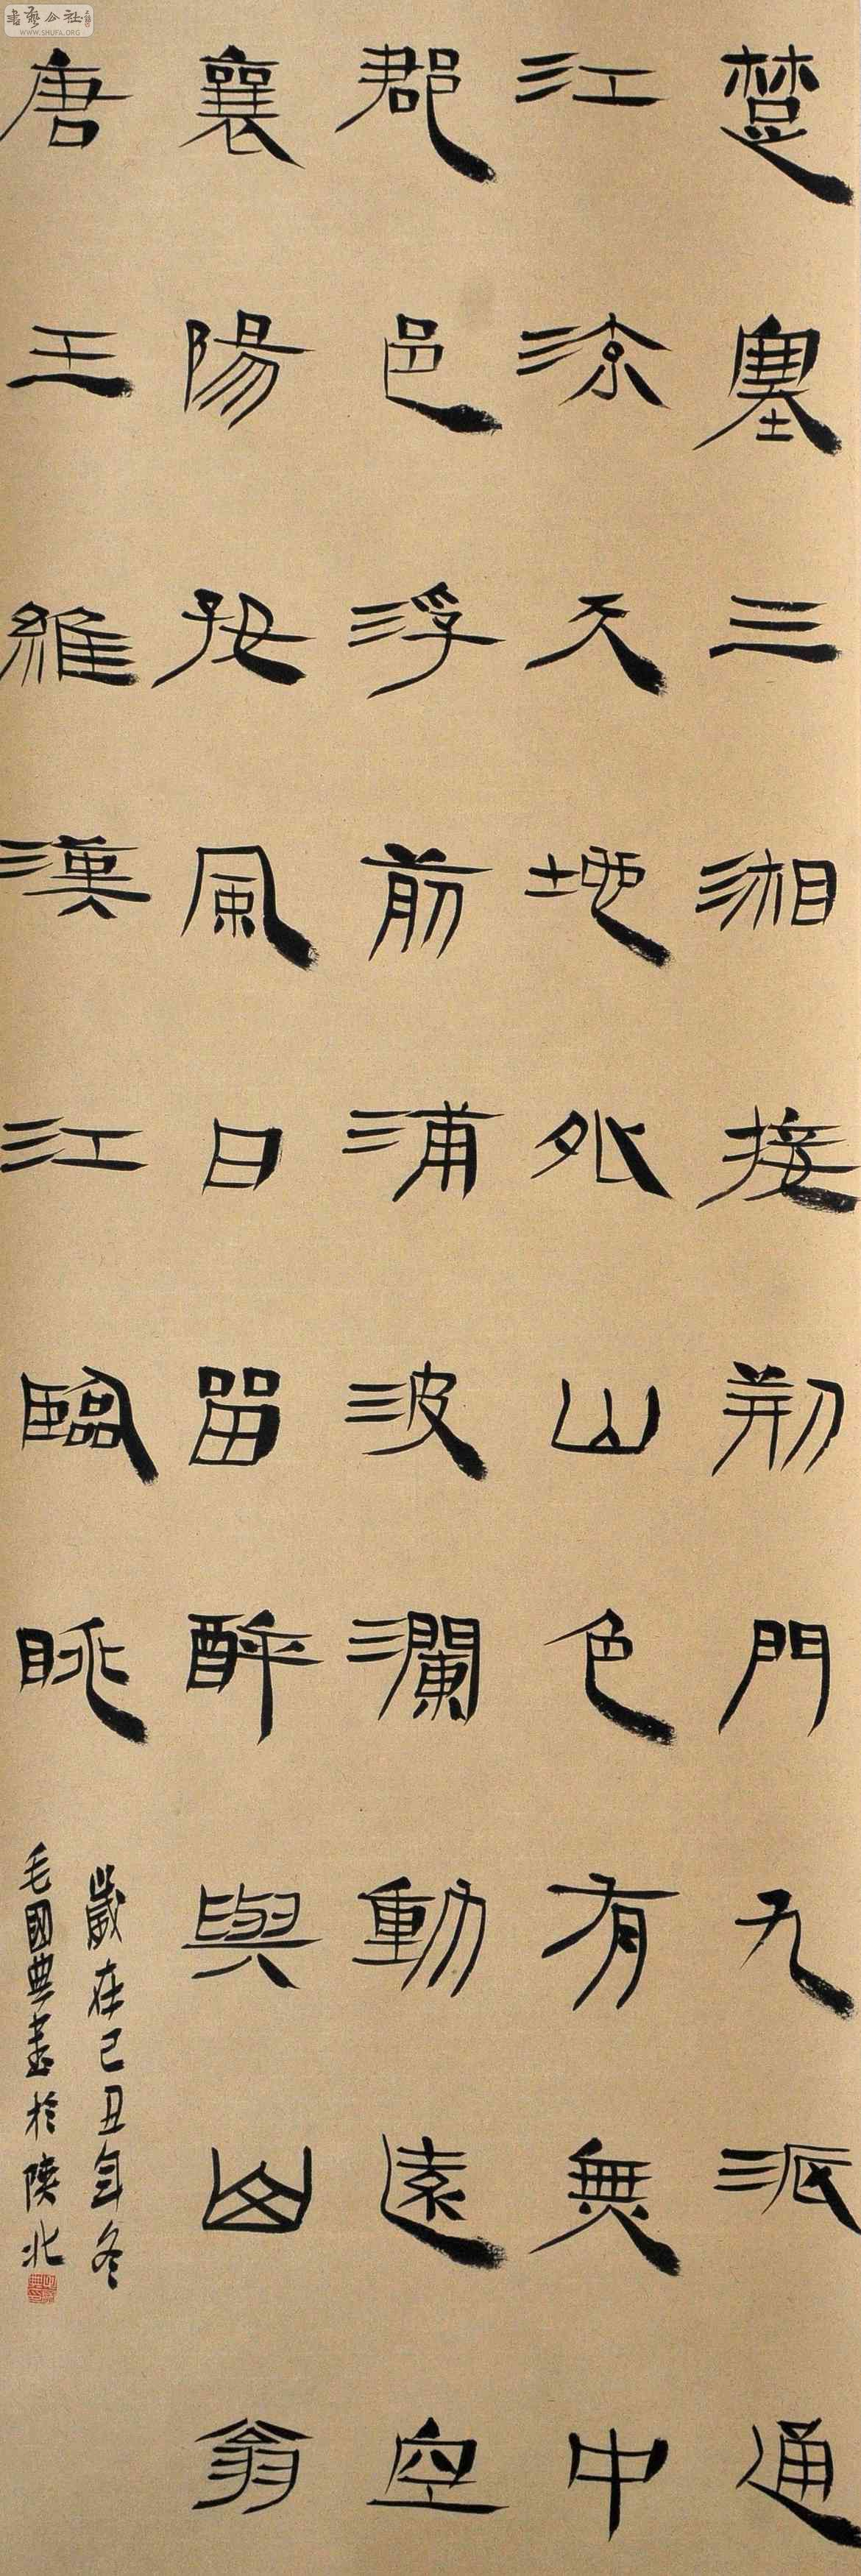 楚塞三湘接荊門九派通
江流天地外山色有無中
郡邑浮前浦波瀾動遠空
襄陽好風日留醉與山翁
唐王維漢江臨眺
歲在己丑年冬
毛國典書於陝北
書藝公社
WWW.SHUFA.ORG